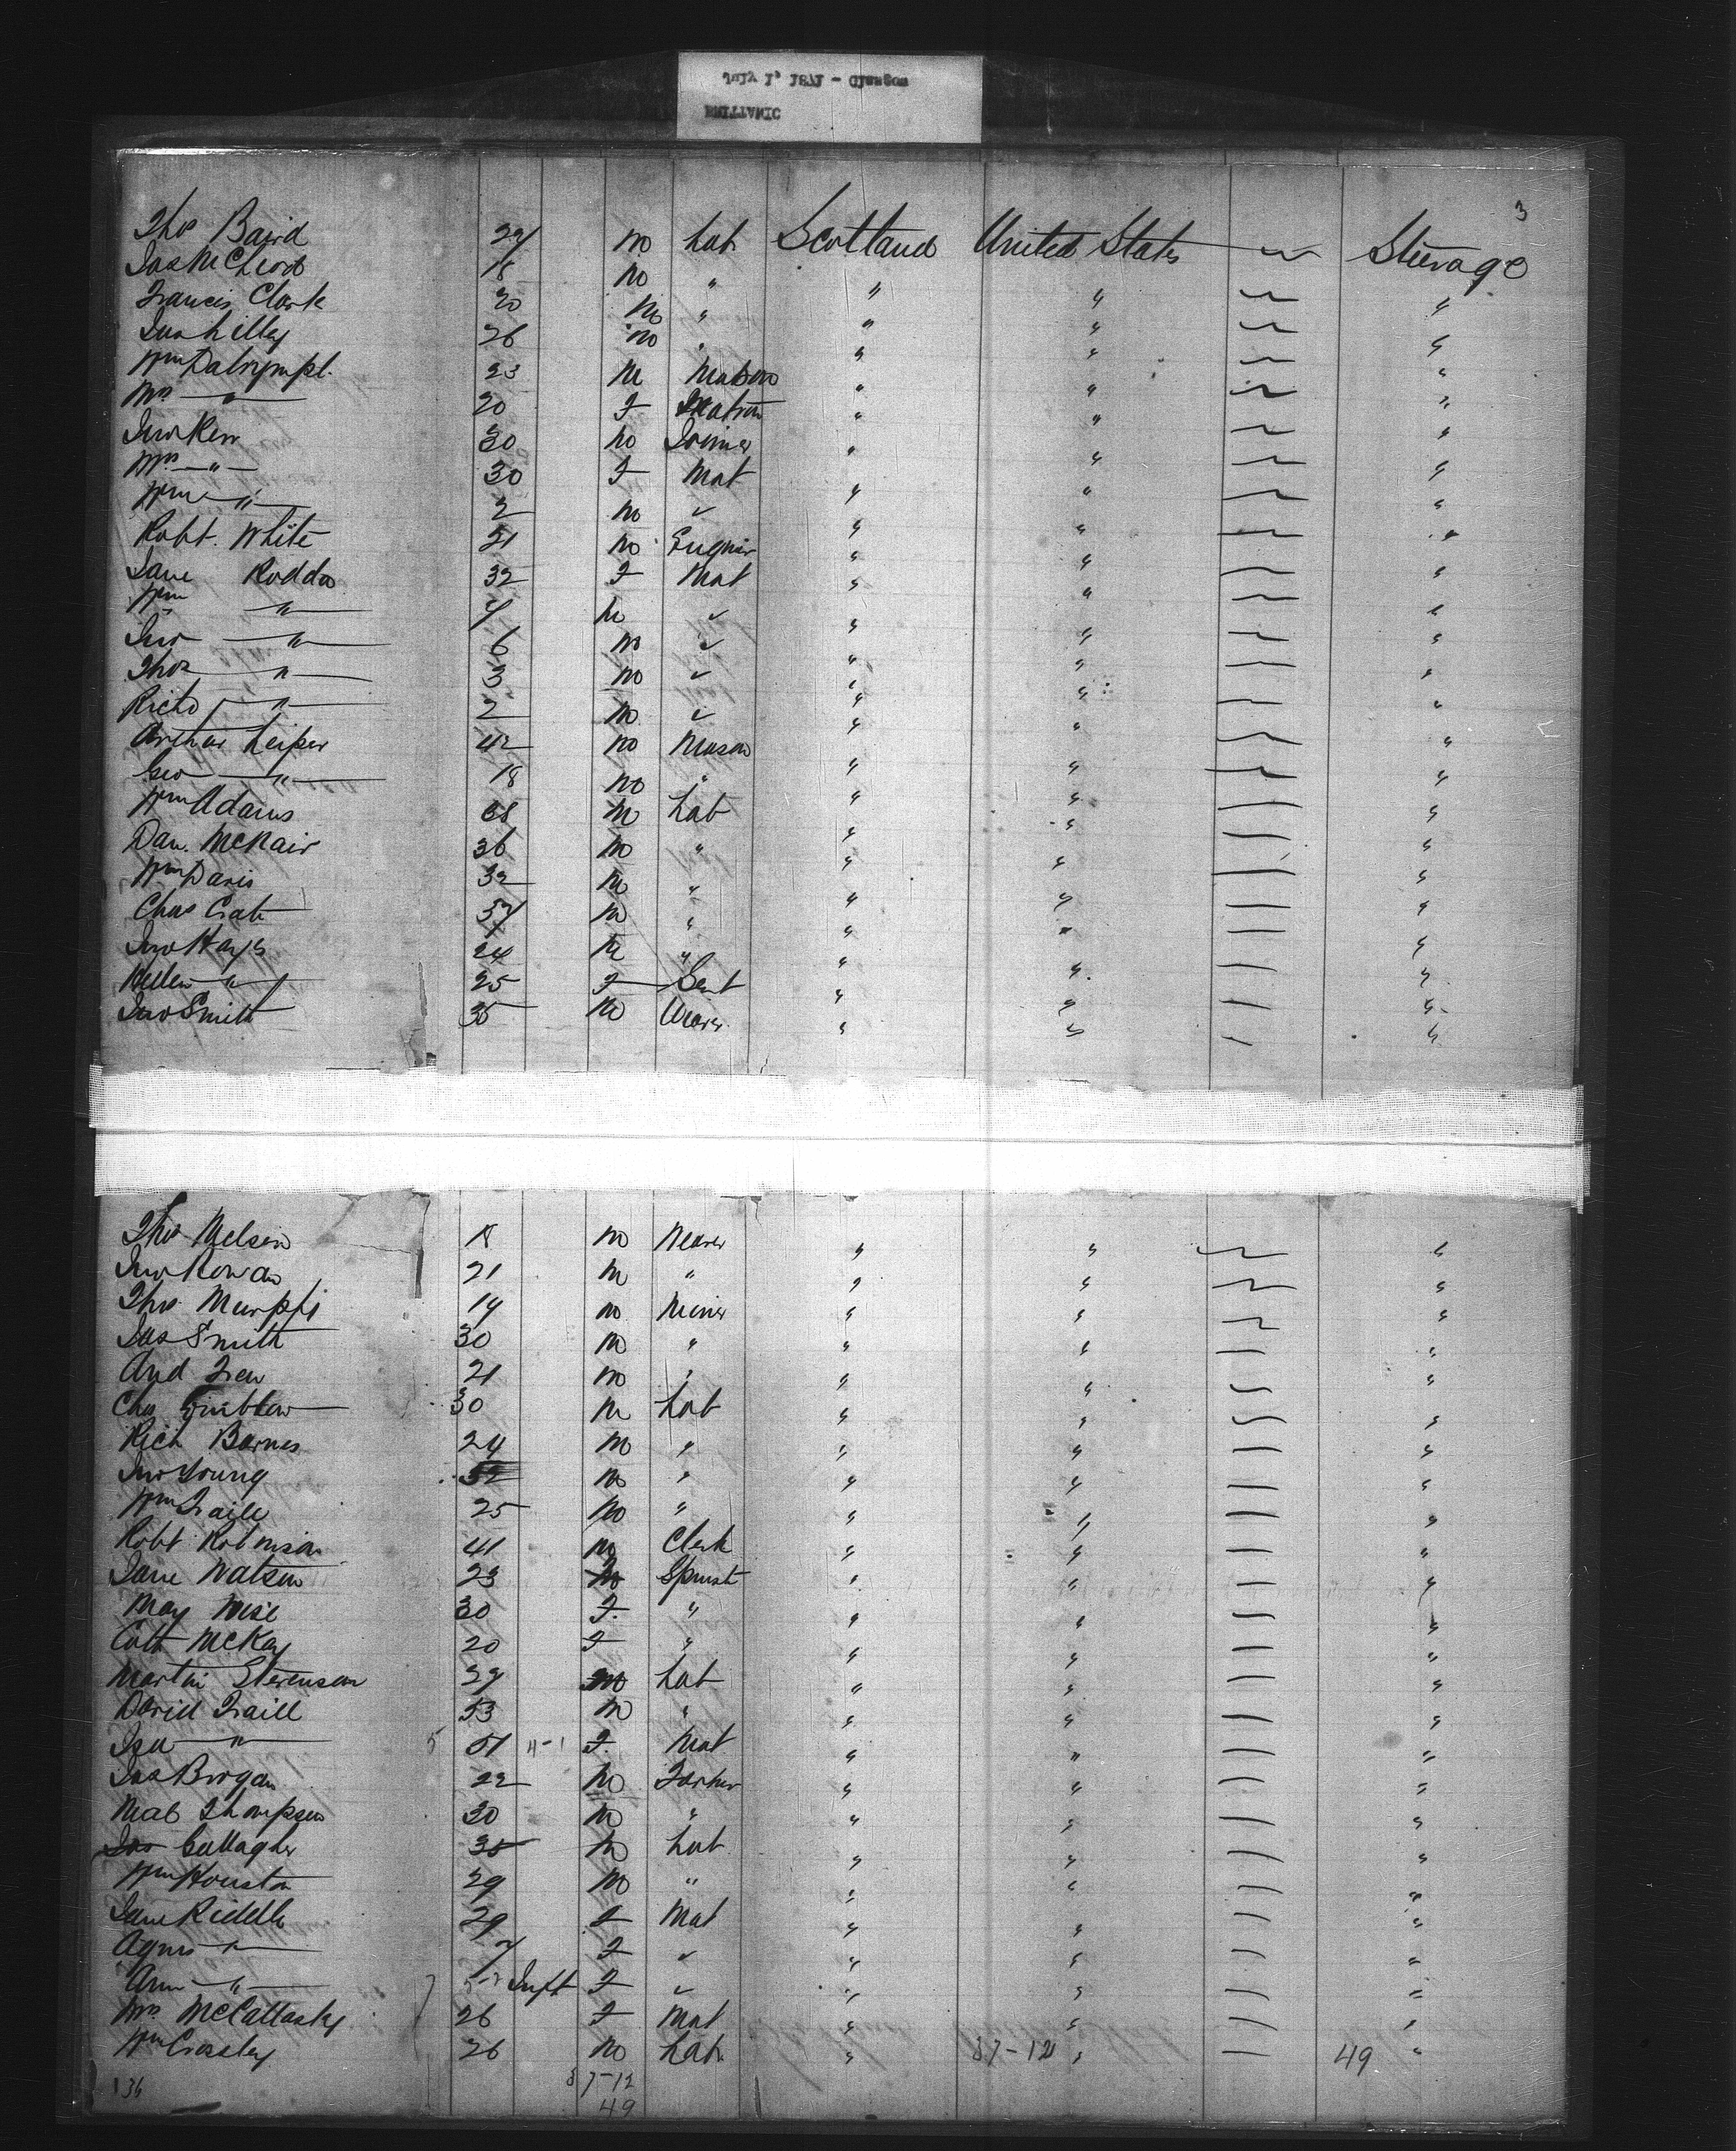 3
Thos Baird 22 M Lab Scotland United States Steerage
Jas McLeod 18 M "
Francis Clark 20 M " " " "
Jas Lilley 26 M " " " "
Wm Dalrympl. 23 M Mason " " "
Mrs " 20 F Matron " " "
Jno Kerr 30 M Joiner " " "
Mrs " 30 F Mat " " "
Wm " 2 M ✓ " " "
Robt. White 21 M Engnir " " "
Jane Rodda 32 F Mat " " "
Wm " M ✓ " " "
Jno " 6 M ✓ " " "
Thos " 3 M ✓ " " "
Richd " 2 M ✓ " " "
Arthur Leiper 42 M Mason " " "
Geo " 18 M " " " "
Wm Adams 38 M Lab " " "
Dan. McNair 36 M " " " "
Wm Davis 32 M " " " "
Chas M " " " "
Jno Hays 24 M " " " "
Hellen " 25 F Sent " " "
Jno Smith 35 M Weavr. " " "
Thos Nelson 18 M Weaver " " "
Jno Rowan 21 M " " " "
Thos Murphy 19 M Miner " " "
Jas Smith 30 M " " " "
And 21 M " " " "
Chas 30 M Lab " " "
Rich Barnes 24 M " " " "
Jno Young 32 M " " " "
Wm Traill 25 M " " " "
Robt Robinson 41 M Clerk " " "
Jane Watson 23 Spinst " " "
May Wise 30 F. " " " "
Cath McKay 20 F " " " "
Martin Stevenson 27 M Lab " " "
David Traill 53 M " " " "
Isa " 51 4-1 F. Mat " " "
Jas Brogan 22 M Farmer " " "
Neal Thompson 30 M " " " "
Jas Gallagher 35 M Lab " " "
Wm Houston 29 M " " " "
Jane Riddle 29 F Mat " " "
Agnes " F ✓ " " "
Ann " Inft F ✓ " " "
Mrs McCallasky 26 F Mat " " "
Wm Crossley 26 M Lab. " 37-12 " 49 "
136 37-12
49